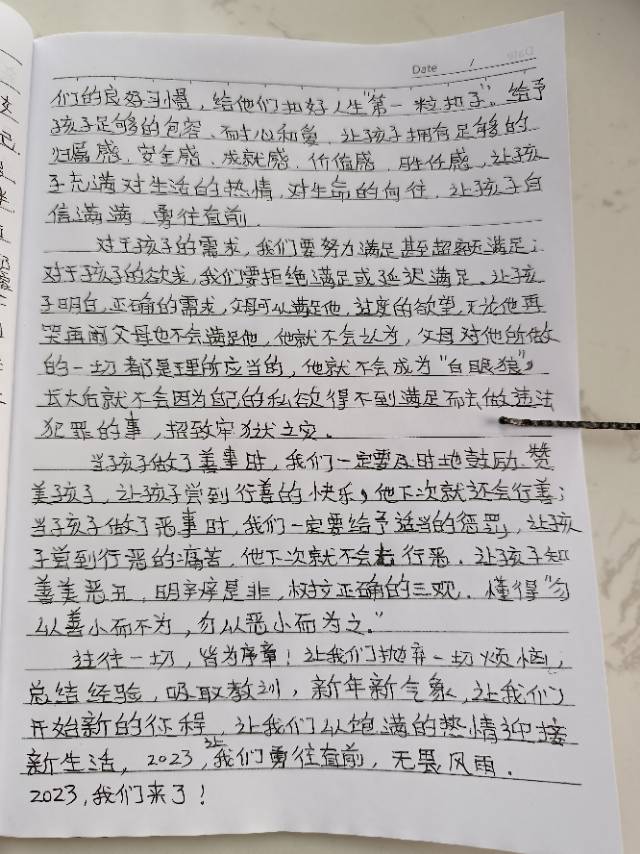 Date /
们的良好习惯，给他们扣好人生“第一粒扣子”。给予
孩子足够的包容、耐心和爱，让孩子拥有足够的
归属感，安全感，成就感，价值感，胜任感，让孩
子充满对生活的热情，对生命的向往，让孩子自
信满满，勇往直前。
对于孩子的需求，我们要努力满足甚至超额满足；
对于孩子的欲求，我们要拒绝满足或延迟满足。让孩
子明白，正确的需求，父母可以满足他，过度的欲望，无论他再
哭再闹父母也不会满足他，他就不会认为，父母对他所做
的一切都是理所应当的，他就不会成为“白眼狼”，
长大后就不会因为自己的私欲得不到满足而去做违法
犯罪的事，招致牢狱之灾。
当孩子做了善事时，我们一定要及时地鼓励、赞
美孩子，让孩子尝到行善的快乐，他下次就还会行善；
当孩子做了恶事时，我们一定要给予适当的惩罚，让孩
子尝到行恶的痛苦，他下次就不会去行恶．让孩子知
善美恶丑，明辛辛是非，树立正确的三观．懂得“勿
以善小而不为，勿以恶小而为之．”
往往一切，皆为序章！让我们抛弃一切烦恼，
总结经验，吸取教训，新年新气象，让我们
开始新的征程，让我们以饱满的热情迎接
新生活，2023，让我们勇往直前，无畏风雨．
2023，我们来了！